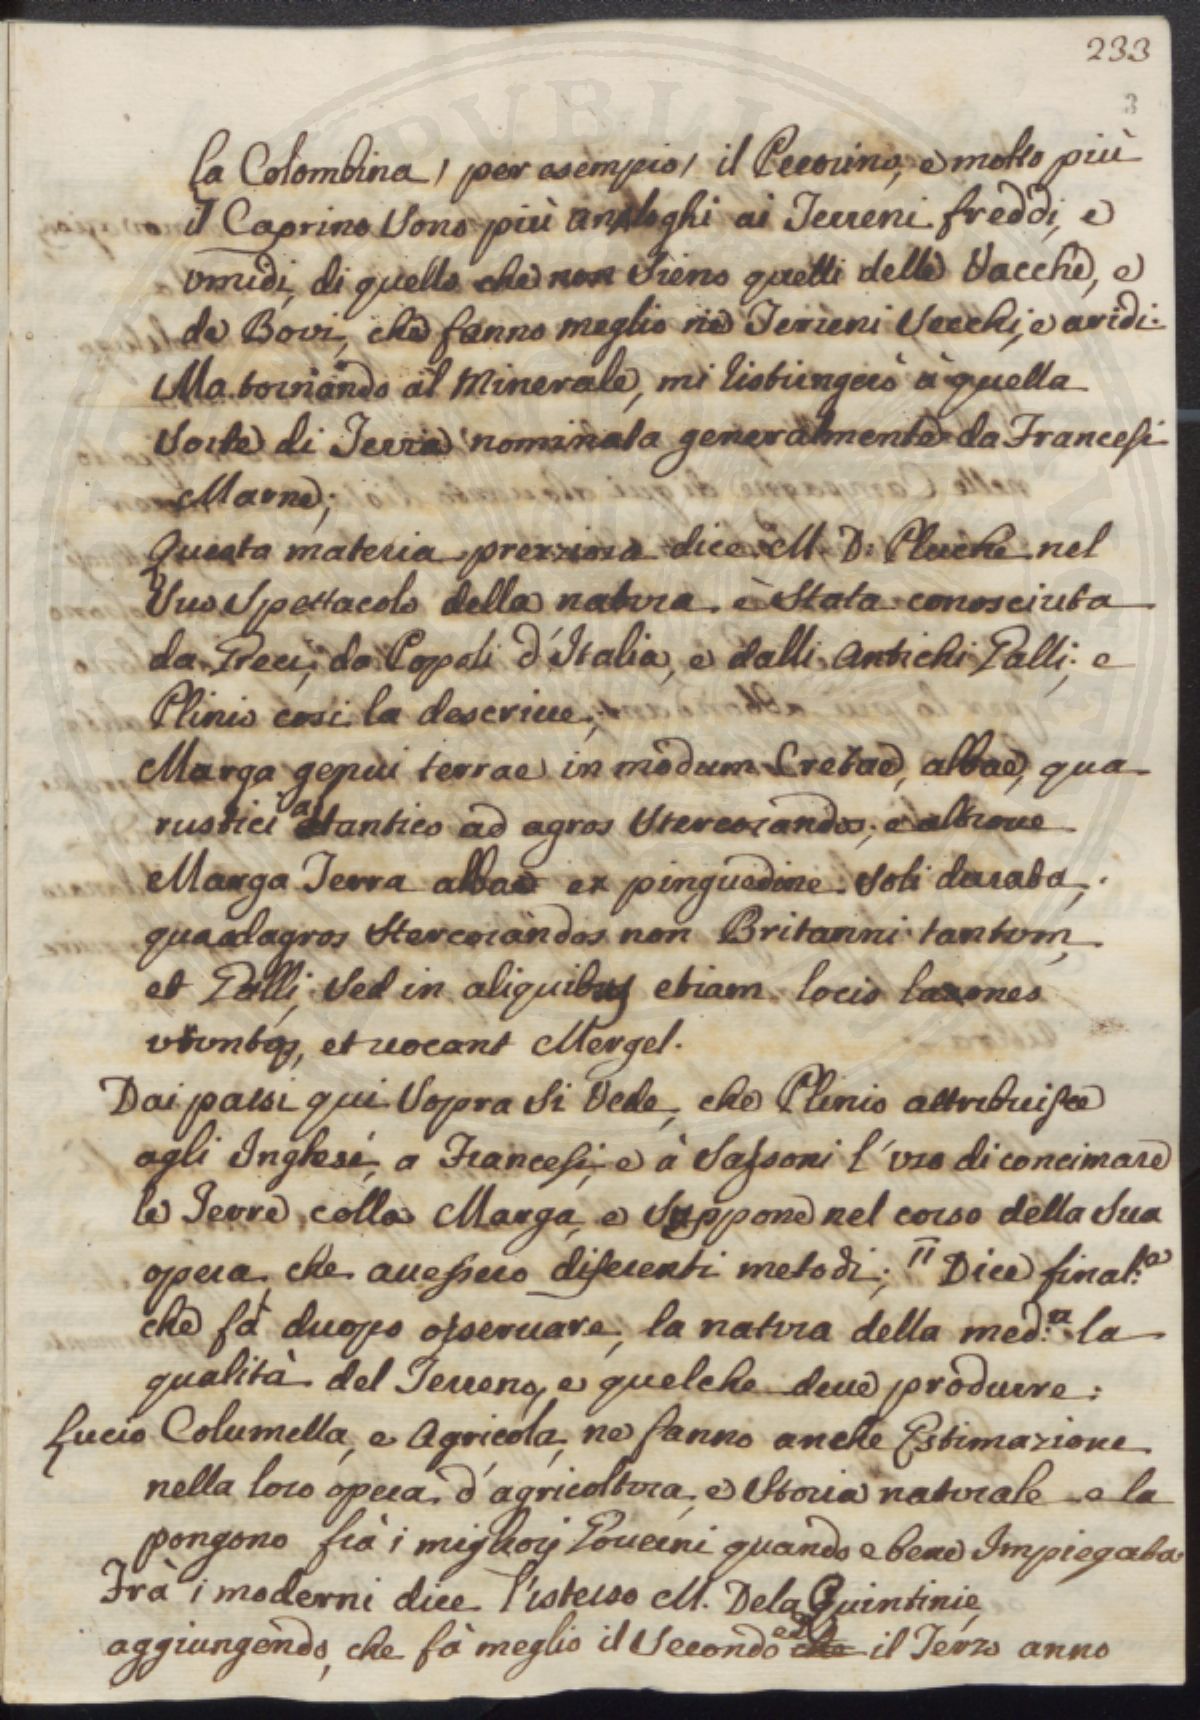 233
3
la Colombina / per esempio / il Pecorino, e molto più
il Caprino sono più analoghi ai Terreni freddi, e
umidi, di quello che non sieno quelli delle Vacche, e
de Bovi, che fanno meglio ne Terreni Secchi, e aridi.
Ma tornando al Minerale, mi listringerò à quella
sorte di Terra nominata generalmente da Francesi
Marne;
Questa materia prezziosa dice M. D. Pluche nel
suo Spettacolo della natura è Stata conosciuta
da Greci, da Popoli d'Italia, e dalli Antichi Galli; e
Plinio così la descrive;
Marga genui terrae in modum Cretae, albae, qua
rustici a tantico ad agros Stercorandos; e altrove
Marga Terra albae ex pinguedine soli durata,
quaadagros Stercorandos non Britanni tantum,
et Galli, Sed in aliquibus etiam locis
utuntur, et vocant Mergel.
Dai passi qui Sopra Si Vede, che Plinio attribuisce
agli Inglesi, a Francesi, e à Sassoni l'uso di concimare
le Terre colla Marga, e Suppone nel corso della Sua
opera, che avessero diferenti metodi; Dice final.te
che fà duopo osservare, la natura della med.a la
qualità del Terreno, e quelche deve produrre:
Lucio Columella, e Agricola, ne fanno anche Estimazione
nella loro opera d'agricoltura, e Storia naturale e la
pongono frà i migliorj Concini quando e bene Impiegata.
Trà i moderni dice l'istesso M. Dela Quintinie,
aggiungendo, che fà meglio il Secondo ed il Terzo anno